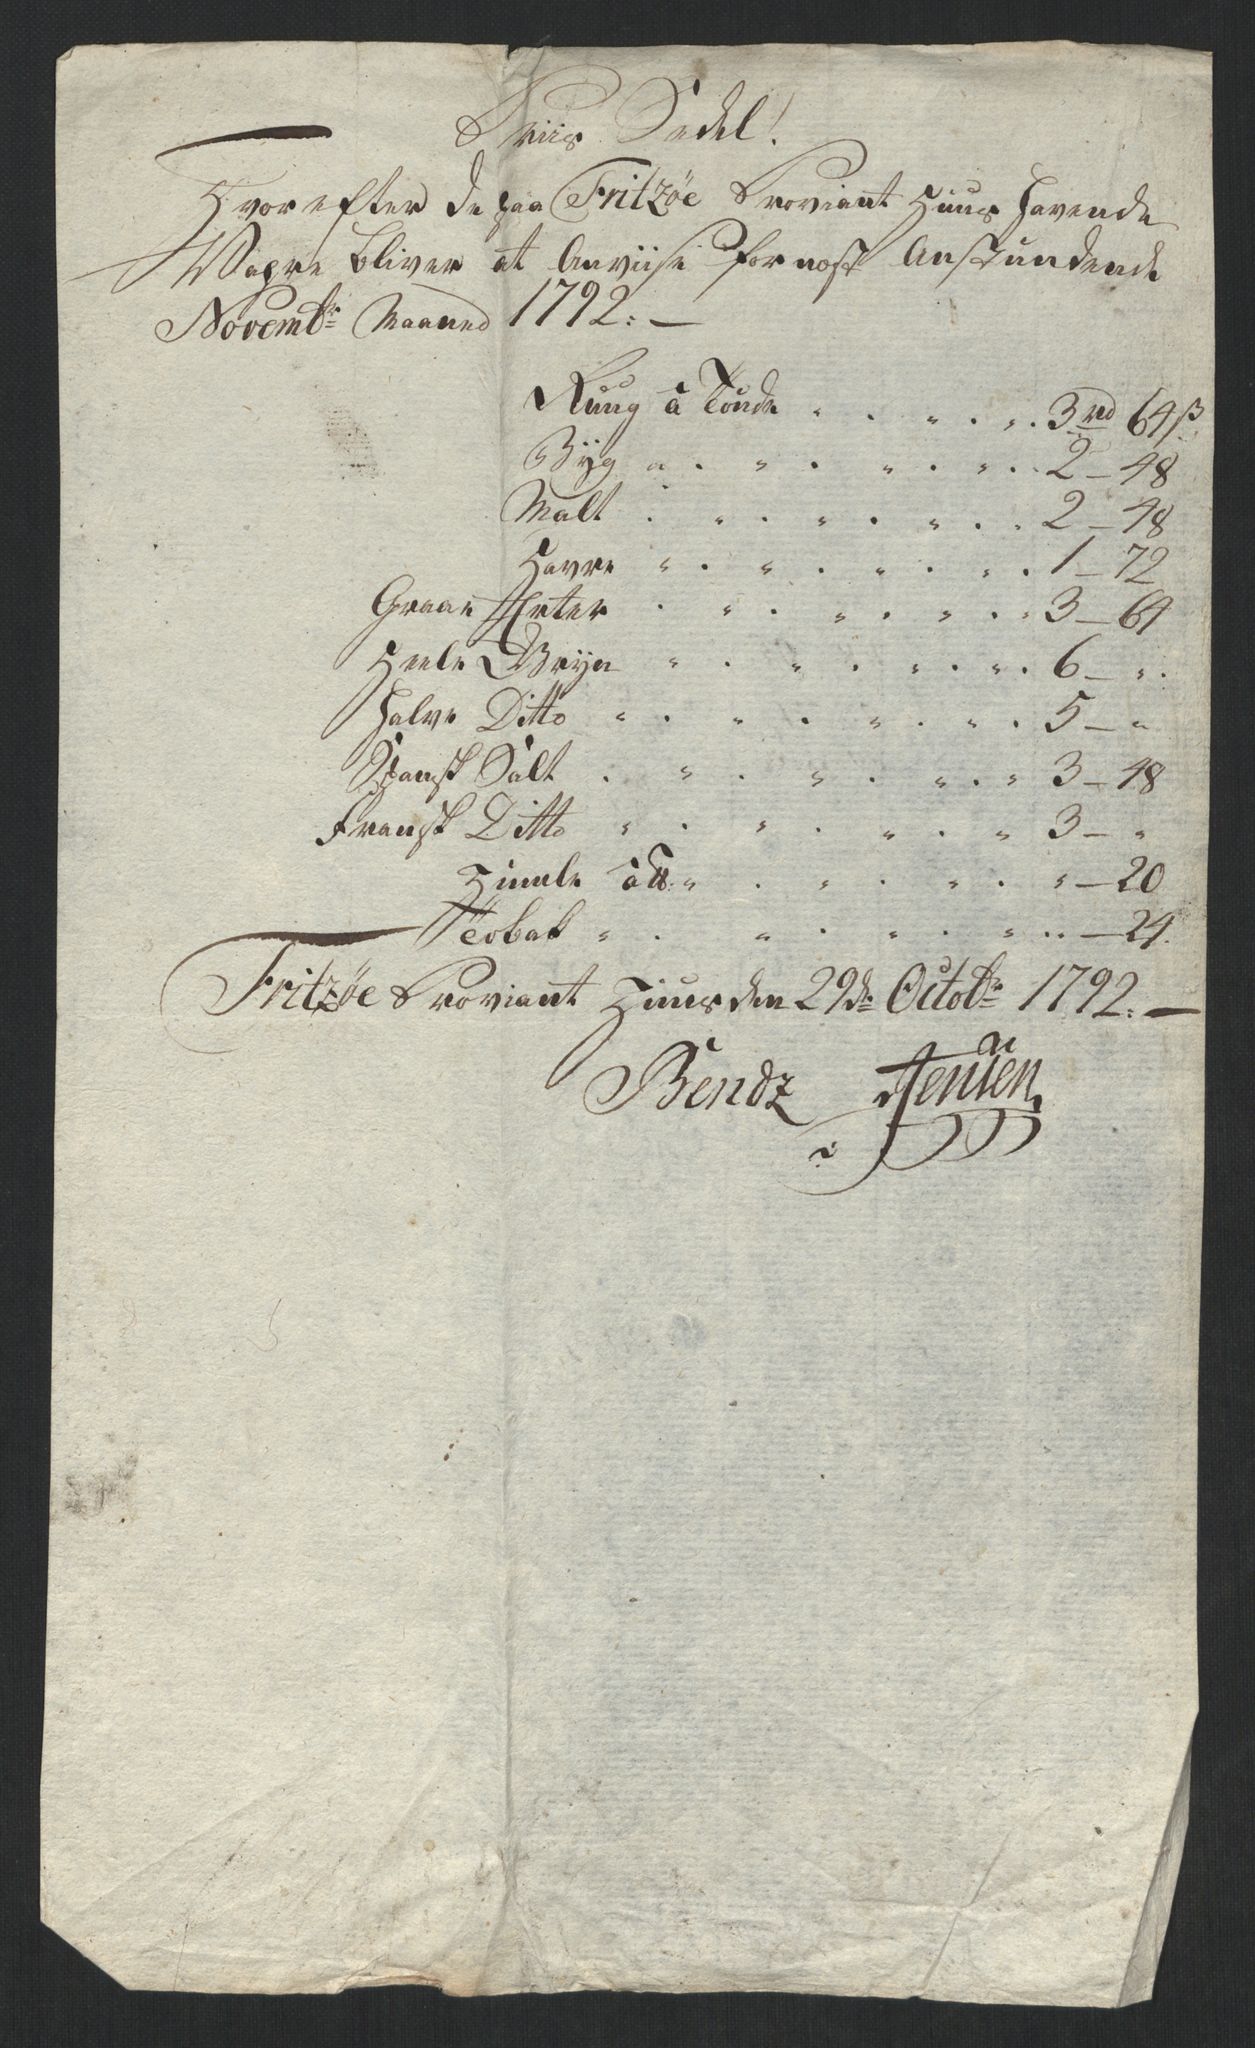 Priis Sedel!
Hvorefter de paa Fritzøe Proviant Huus havende
Vahre bliver at Anviise for næst Anstundende
Novembr: Maaned 1792:—
Ruug à Tönde . . . . . 3 rd 64 ß
Byg a . . . . . 2 — 48
Malt . . . . . 2 — 48
Havre . . . . . 1 — 72
Graae Erter . . . . . 3 — 64
Heele Gryn . . . . . 6 — "
Halve Ditto . . . . . 5 — "
Spansk Salt . . . . . 3 — 48
Fransk Ditto . . . . . 3 — "
Humle à ℔: . . . . . " — 20
Tobak . . . . . " — 24.
Fritzøe Proviant Huus den 29de Octobr: 1792:—
Bendz Jensen